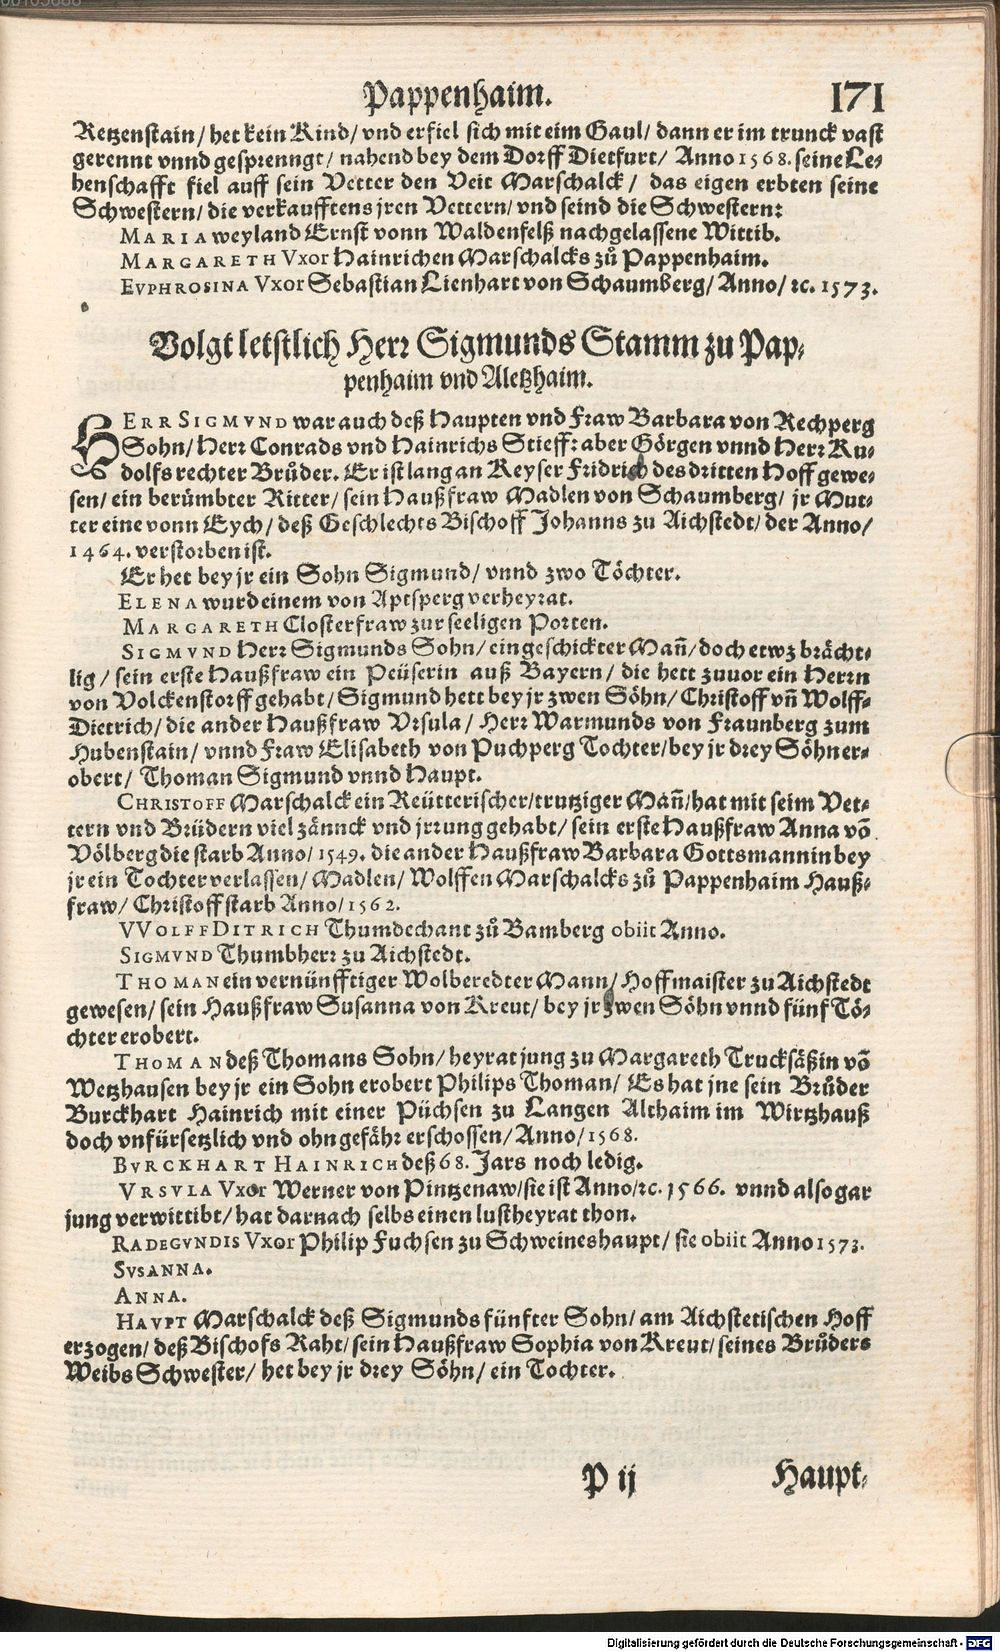 Pappenhaim. 171
Retzenstain/ het kein Kind/ vnd erfiel sich mit eim Gaul/ dann er im trunck vast
gerennt vnnd gesprenngt/ nahend bey dem Dorff Dietfurt/ Anno 1568. seine Le-
henschafft fiel auff sein Vetter den Veit Marschalck/ das eigen erbten seine
Schwestern/ die verkaufftens jren Vettern/ vnd seind die Schwestern:
MARIA weyland Ernst vonn Waldenfelß nachgelassene Wittib.
MARGARETH Vxor Hainrichen Marschalcks zů Pappenhaim.
EVPHROSINA Vxor Sebastian Lienhart von Schaumberg/ Anno/ ꝛc. 1573.
Volgt letstlich Herr Sigmunds Stamm zu Pap-
penhaim vnd Aletzhaim.
HERR SIGMVND war auch deß Haupten vnd Fraw Barbara von Rechperg
Sohn/ Herr Conrads vnd Hainrichs Stieff: aber Görgen vnnd Herr Ru-
dolfs rechter Brůder. Er ist lang an Keyser Fridrich des dritten Hoff gewe-
sen/ ein berümbter Ritter/ sein Haußfraw Madlen von Schaumberg/ jr Mut-
ter eine vonn Eych/ deß Geschlechts Bischoff Johanns zu Aichstedt/ der Anno/
1464. verstorben ist.
Er het bey jr ein Sohn Sigmund/ vnnd zwo Töchter.
ELENA wurd einem von Aptsperg verheyrat.
MARGARETH Closterfraw zur seeligen Porten.
SIGMVND Herr Sigmunds Sohn/ ein geschickter Mañ/ doch etwz brächt-
lig/ sein erste Haußfraw ein Peüserin auß Bayern/ die hett zuvor ein Herrn
von Volckenstorff gehabt/ Sigmund hett bey jr zwen Söhn/ Christoff vñ Wolff-
Dietrich/ die ander Haußfraw Vrsula/ Herr Warmunds von Fraunberg zum
Hubenstain/ vnnd Fraw Elisabeth von Puchperg Tochter/ bey jr drey Söhn er-
obert/ Thoman Sigmund vnnd Haupt.
CHRISTOFF Marschalck ein Reütterischer/ trutziger Mañ/ hat mit seim Vet-
tern vnd Brüdern viel zännck vnd jrrung gehabt/ sein erste Haußfraw Anna vō
Völberg die starb Anno/ 1549. die ander Haußfraw Barbara Gottsmannin bey
jr ein Tochter verlassen/ Madlen/ Wolffen Marschalcks zů Pappenhaim Hauß-
fraw/ Christoff starb Anno/ 1562.
VVOLFFDITRICH Thumdechant zů Bamberg obiit Anno.
SIGMVND Thumbherr zu Aichstedt.
THOMAN ein vernünfftiger Wolberedter Mann/ Hoffmaister zu Aichstedt
gewesen/ sein Haußfraw Susanna von Kreut/ bey jr zwen Söhn vnnd fünf Tö-
chter erobert.
THOMAN deß Thomans Sohn/ heyrat jung zu Margareth Trucksäßin vō
Wetzhausen bey jr ein Sohn erobert Philips Thoman/ Es hat jne sein Brůder
Burckhart Hainrich mit einer Püchsen zu Langen Althaim im Wirtzhauß
doch vnfürsetzlich vnd ohngefähr erschossen/ Anno/ 1568.
BVRCKHART HAINRICH deß 68. Jars noch ledig.
VRSVLA Vxor Werner von Pintzenaw/ sie ist Anno/ ꝛc. 1566. vnnd also gar
jung verwittibt/ hat darnach selbs einen lustheyrat thon.
RADEGVNDIS Vxor Philip Fuchsen zu Schweineshaupt/ sie obiit Anno 1573.
SVSANNA.
ANNA.
HAVPT Marschalck deß Sigmunds fünfter Sohn/ am Aichstetischen Hoff
erzogen/ deß Bischofs Raht/ sein Haußfraw Sophia von Kreut/ seines Brůders
Weibs Schwester/ het bey jr drey Söhn/ ein Tochter.
P ij Haupt-
Digitalisierung gefördert durch die Deutsche Forschungsgemeinschaft - DFG